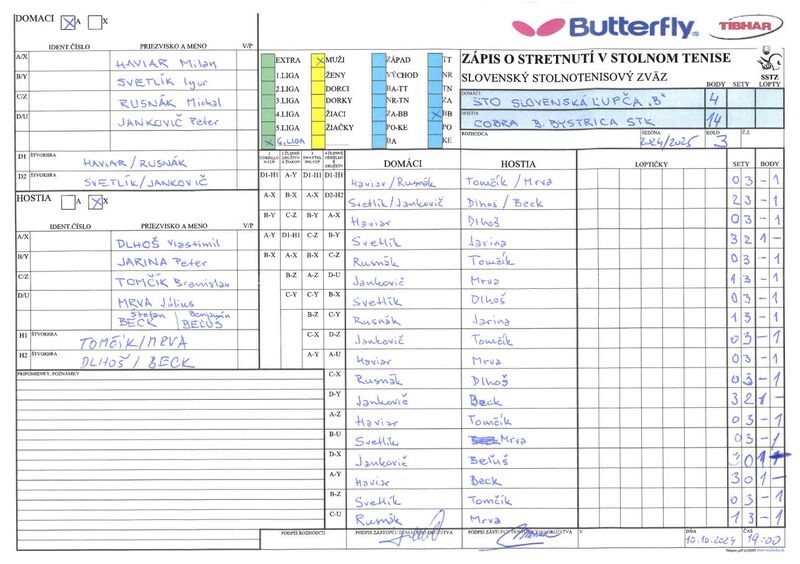 DOMÁCI X A
IDENT.ČÍSLO PRIEZVISKO A MENO V/P
A/X HAVIAR Milan
B/Y SVETLÍK Igor
C/Z RUSNÁK Michal
D/U JANKOVIČ Peter
D1 ŠTVORHRA HAVIAR/RUSNÁK
D2 ŠTVORHRA SVETLÍK/JANKOVIČ
HOSTIA A X
IDENT.ČÍSLO PRIEZVISKO A MENO V/P
A/X DLHOŠ Vlastimil
B/Y JARINA Peter
C/Z TOMČÍK Branislav
D/U MRVA Július
Štefan BECK Benjamín BEĽUŠ
H1 ŠTVORHRA TOMČÍK/MRVA
H2 ŠTVORHRA DLHOŠ/BECK
PRIPOMIENKY, POZNÁMKY
Butterfly TIBHAR
EXTRA X MUŽI ZÁPAD TT
1.LIGA ŽENY VÝCHOD NR
2.LIGA DORCI BA-TT TN
3.LIGA DORKY NR-TN ZA
4.LIGA ŽIACI ZA-BB X BB
5.LIGA ŽIAČKY PO-KE PO
X 6.LIGA BA KE
ZÁPIS O STRETNUTÍ V STOLNOM TENISE
SLOVENSKÝ STOLNOTENISOVÝ ZVÄZ
SSTZ
BODY SETY LOPTY
DOMÁCI STO SLOVENSKÁ ĽUPČA „B" 4
HOSTIA COBRA B. BYSTRICA STK 14
ROZHODCA SEZÓNA 2024/2025 KOLO 3 Č.Z.
DOMÁCI HOSTIA LOPTIČKY SETY BODY
D1-H1 A-Y D1-H1 D1-H1 Haviar/Rusnák Tomčík/Mrva 0 3 - 1
A-X B-X A-X D2-H2 Svetlík/Jankovič Dlhoš/Beck 2 3 - 1
B-Y C-Z B-Y A-X Haviar Dlhoš 0 3 - 1
A-Y D1-H1 C-Z B-Y Svetlík Jarina 3 2 1 -
B-X A-X B-X C-Z Rusnák Tomčík 0 3 - 1
B-Z A-Z D-U Jankovič Mrva 1 3 - 1
C-Y C-Y B-X Svetlík Dlhoš 0 3 - 1
B-Z C-Y Rusnák Jarina 1 3 - 1
C-X D-Z Jankovič Tomčík 0 3 - 1
A-Y A-U Haviar Mrva 0 3 - 1
C-X Rusnák Dlhoš 0 3 - 1
D-Y Jankovič Beck 3 2 1 -
A-Z Haviar Tomčík 0 3 - 1
B-U Svetlík Mrva 0 3 - 1
D-X Jankovič Beľuš 3 0 1
A-Y Haviar Beck 3 0 1 -
B-Z Svetlík Tomčík 0 3 - 1
C-U Rusnák Mrva 1 3 - 1
PODPIS ROZHODCU PODPIS ZÁSTUPCU DOMÁCEHO DRUŽSTVA PODPIS ZÁSTUPCU HOSŤUJÚCEHO DRUŽSTVA V DŇA 10.10.2024 ČAS 19:00